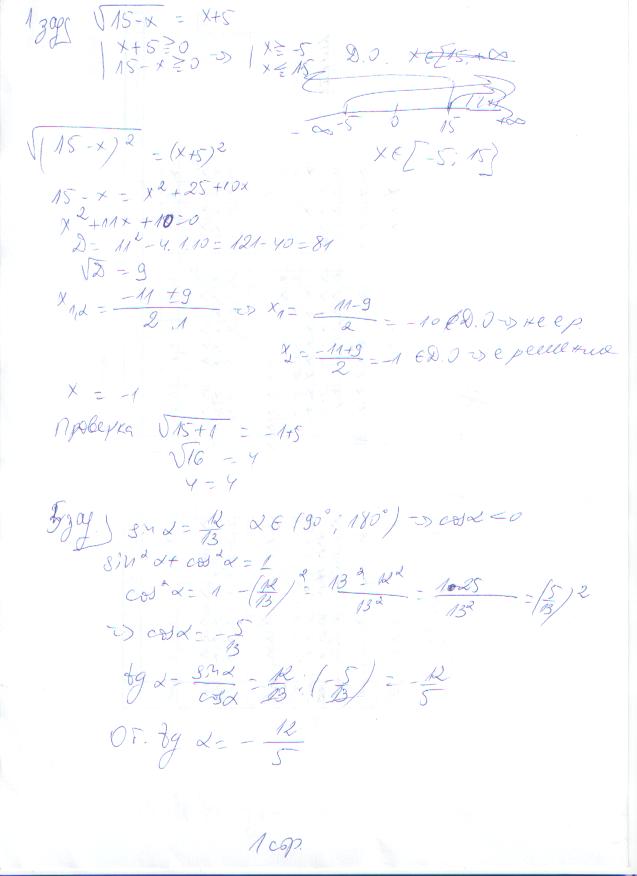 1 зад) √15-x = x+5
| x+5 ≥ 0 => | x ≥ -5 Д.О.
| 15-x ≥ 0 | x ≤ 15
-∞ -5 0 15 +∞
√(15-x)² = (x+5)² x ∈ [-5; 15]
15-x = x²+25+10x
x²+11x+10=0
D = 11²-4.1.10 = 121-40 = 81
√D = 9
x1,2 = (-11 ± 9)/(2.1) => x1 = (-11-9)/2 = -10 ∉ Д.О => не е р.
x2 = (-11+9)/2 = -1 ∈ Д.О => е решение
x = -1
Проверка √15+1 = -1+5
√16 = 4
4 = 4
зад) sin α = 12/13 α ∈ (90°; 180°) => cos α < 0
sin²α + cos²α = 1
cos²α = 1 - (12/13)² = (13² - 12²)/13² = 1.25/13² = (5/13)²
=> cos α = -5/13
tg α = sin α/cos α = 12/13 : (-5/13) = -12/5
От. tg α = -12/5
1 стр.